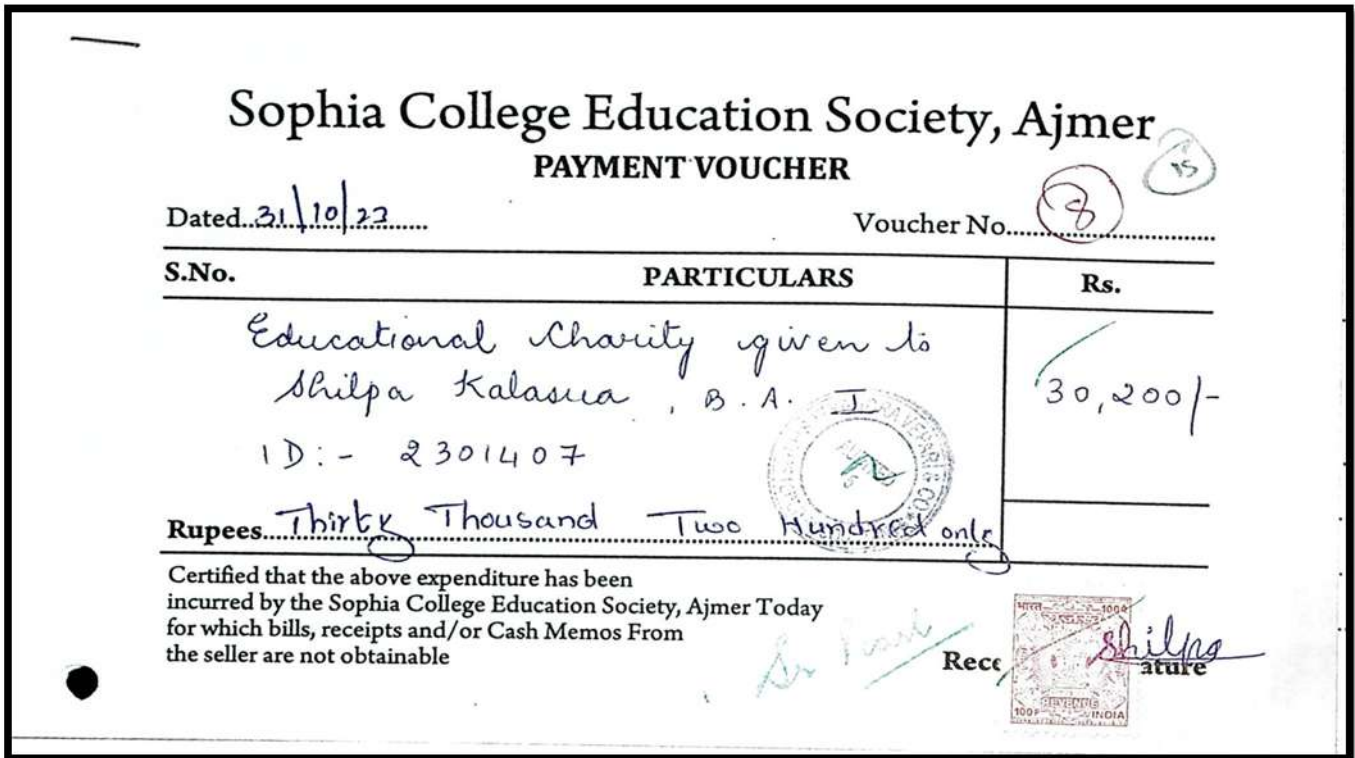 Sophia College Education Society, Ajmer
PAYMENT VOUCHER
15
Dated..31/10/23......
Voucher No...8...
S.No. PARTICULARS Rs.
Educational Charity given to
Shilpa Kalasua, B.A. I
30,200/-
ID:- 2301407
Rupees....Thirty Thousand Two Hundred only
Certified that the above expenditure has been
incurred by the Sophia College Education Society, Ajmer Today
for which bills, receipts and/or Cash Memos From
the seller are not obtainable
भारत 100
Shilpa
Rece ature
REVENUE
100 INDIA